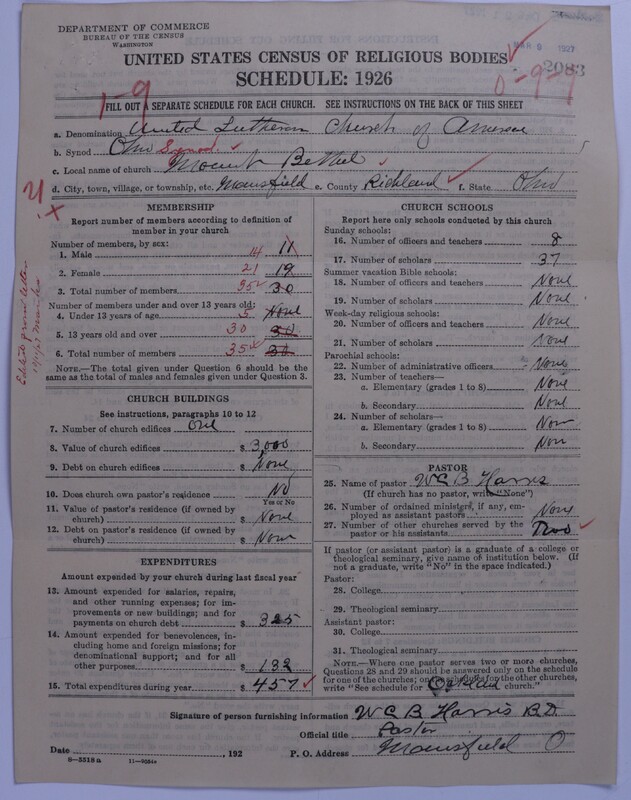 DEPARTMENT OF COMMERCE
BUREAU OF THE CENSUS
WASHINGTON
MAR 9 1927
2083
UNITED STATES CENSUS OF RELIGIOUS BODIES
SCHEDULE: 1926
1-9
0-9-9
FILL OUT A SEPARATE SCHEDULE FOR EACH CHURCH. SEE INSTRUCTIONS ON THE BACK OF THIS SHEET
a. Denomination United Lutheran Church of America
b. Synod Ohio Synod
c. Local name of church Mount Bethel
d. City, town, village, or township, etc. Mansfield e. County Richland f. State Ohio
MEMBERSHIP
Report number of members according to definition of
member in your church
Number of members, by sex:
1. Male 14 11
2. Female 21 19
3. Total number of members 35 30
Number of members under and over 13 years old:
4. Under 13 years of age 5 None
5. 13 years old and over 30 30
6. Total number of members 35 30
NOTE.—The total given under Question 6 should be
the same as the total of males and females given under Question 3.
CHURCH BUILDINGS
See instructions, paragraphs 10 to 12
7. Number of church edifices One
8. Value of church edifices $ 3,000
9. Debt on church edifices $ None
10. Does church own pastor's residence No
Yes or No
11. Value of pastor's residence (if owned by
church) $ None
12. Debt on pastor's residence (if owned by
church) $ None
EXPENDITURES
Amount expended by your church during last fiscal year
13. Amount expended for salaries, repairs,
and other running expenses; for im-
provements or new buildings; and for
payments on church debt $ 325
14. Amount expended for benevolences, in-
cluding home and foreign missions; for
denominational support; and for all
other purposes $ 132
15. Total expenditures during year $ 457
CHURCH SCHOOLS
Report here only schools conducted by this church
Sunday schools:
16. Number of officers and teachers 8
17. Number of scholars 37
Summer vacation Bible schools:
18. Number of officers and teachers None
19. Number of scholars None
Week-day religious schools:
20. Number of officers and teachers None
21. Number of scholars None
Parochial schools:
22. Number of administrative officers None
23. Number of teachers—
a. Elementary (grades 1 to 8) None
b. Secondary None
24. Number of scholars—
a. Elementary (grades 1 to 8) Non
b. Secondary Non
PASTOR
25. Name of pastor W C B Harris
(If church has no pastor, write "None")
26. Number of ordained ministers, if any, em-
ployed as assistant pastors None
27. Number of other churches served by the
pastor or his assistants Two
If pastor (or assistant pastor) is a graduate of a college or
theological seminary, give name of institution below. (If
not a graduate, write "No" in the space indicated.)
Pastor:
28. College
29. Theological seminary
Assistant pastor:
30. College
31. Theological seminary
NOTE.—Where one pastor serves two or more churches,
Questions 28 and 29 should be answered only on the schedule
for one of the churches; on schedules for the other churches,
write "See schedule for church."
Signature of person furnishing information W C B Harris B.D.
Official title Pastor
Date , 192 P. O. Address Mansfield O
8-5518a